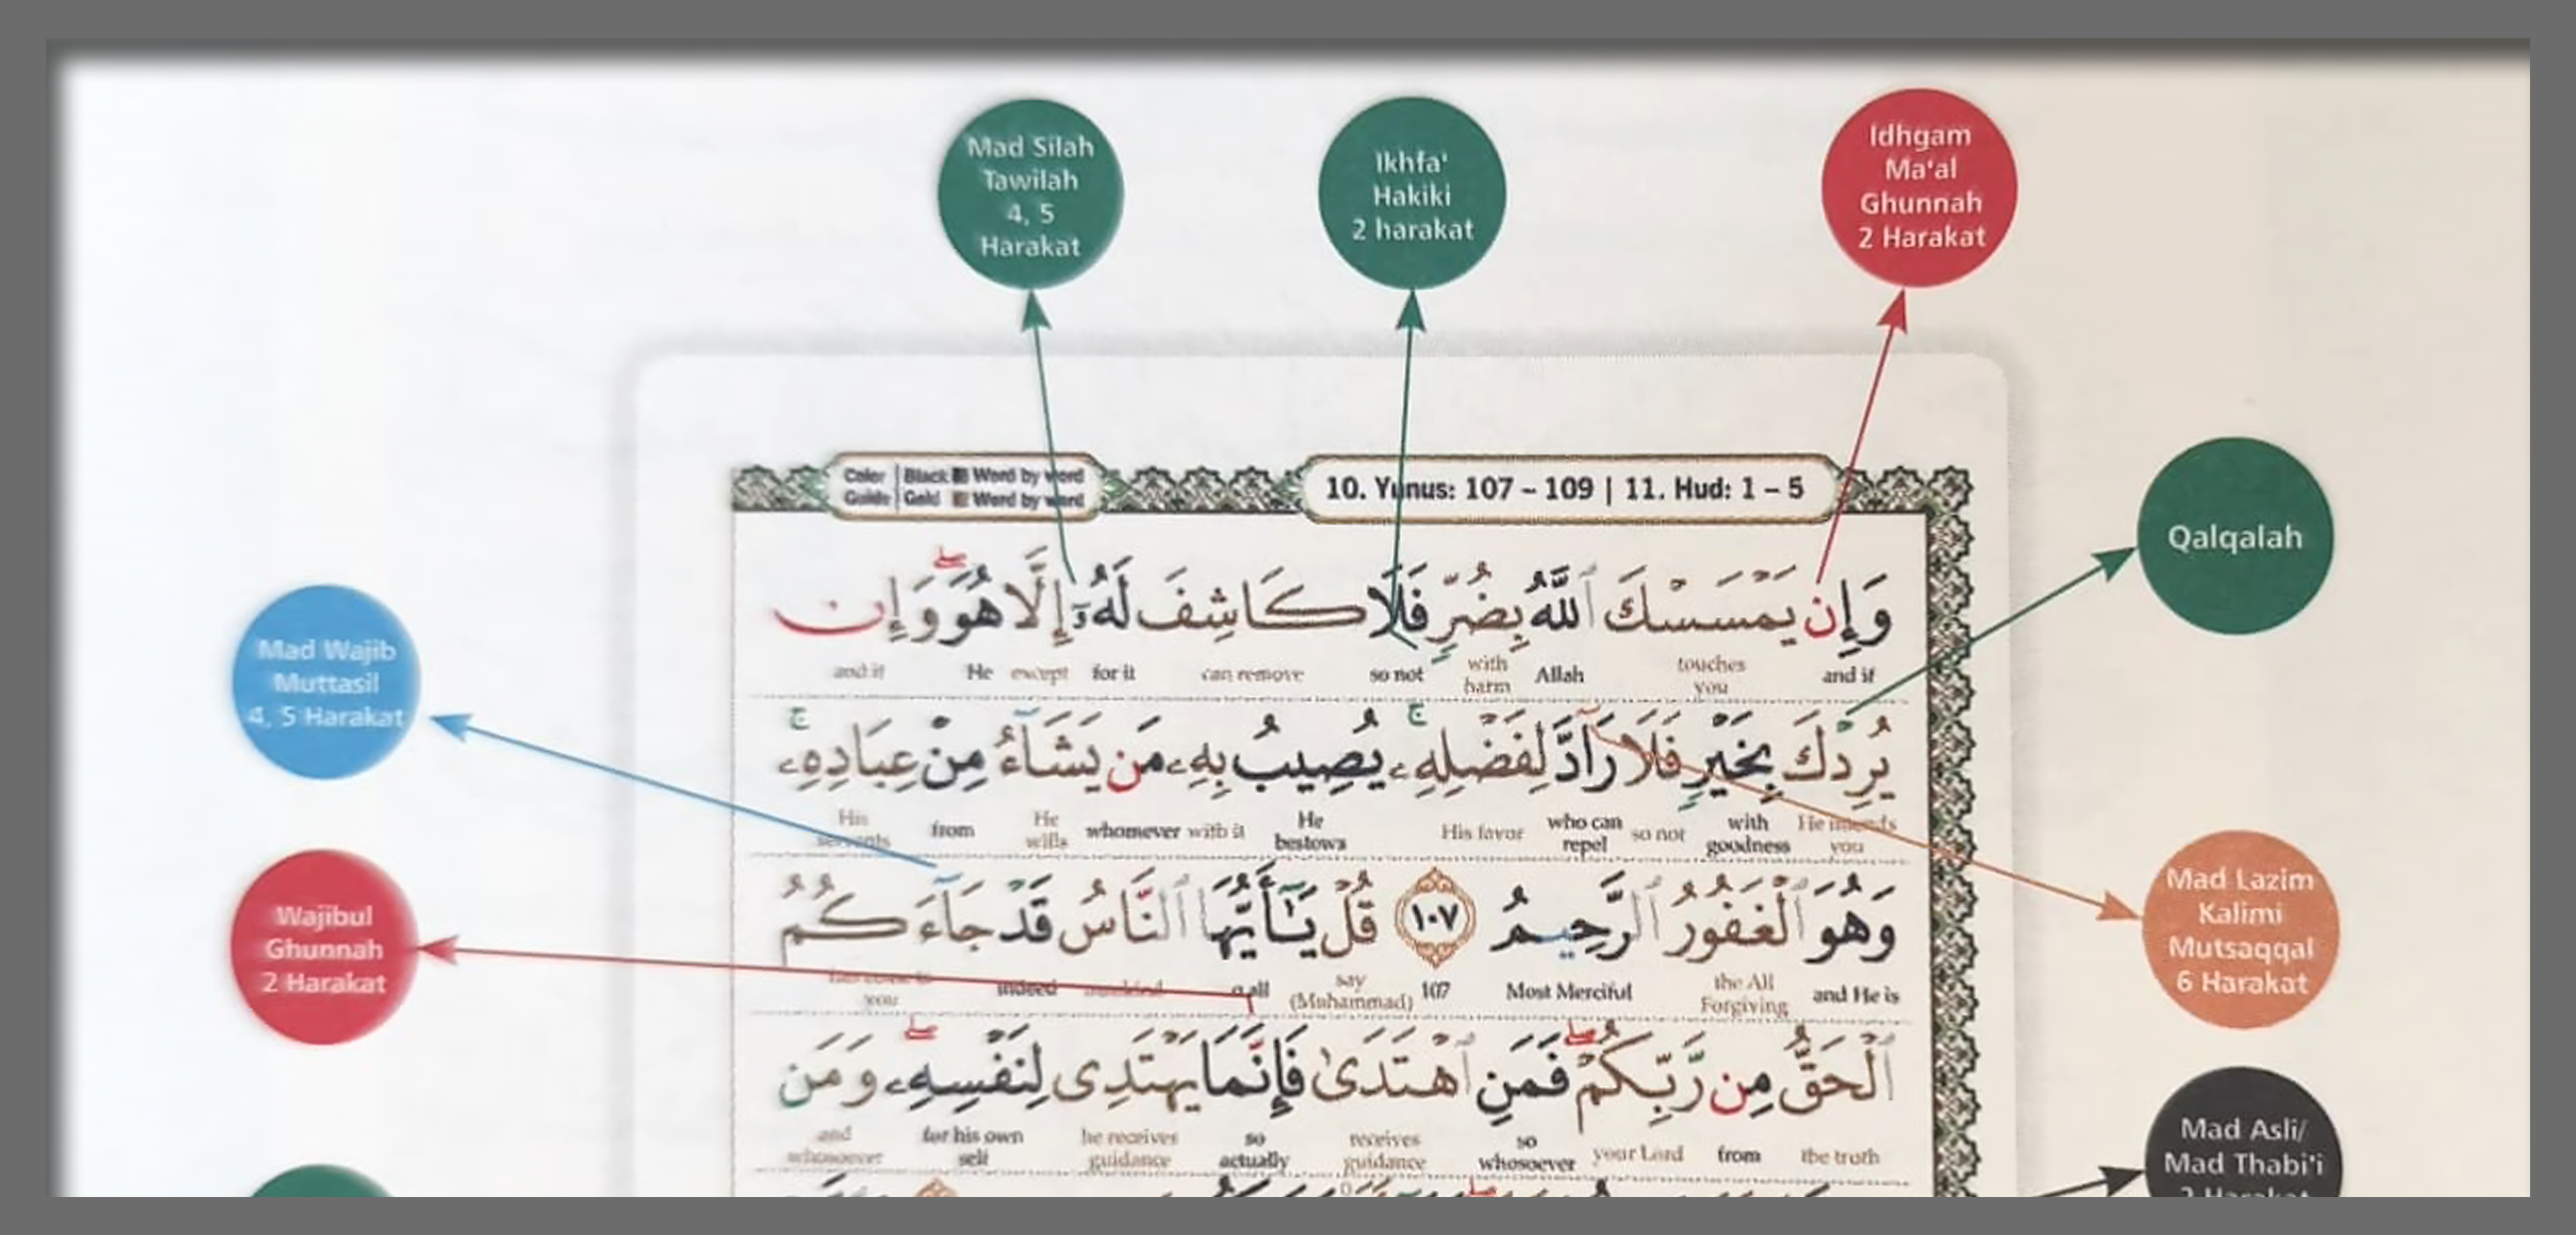 Mad Silah
Tawilah
4, 5
Harakat
Ikhfa'
Hakiki
2 harakat
Idhgam
Ma'al
Ghunnah
2 Harakat
Color Guide | Black Word by word
Gold Word by word
10. Yunus: 107 – 109 | 11. Hud: 1 – 5
Qalqalah
وَإِن يَمْسَسْكَ ٱللَّهُ بِضُرٍّ فَلَا كَاشِفَ لَهُۥٓ إِلَّا هُوَ ۖ وَإِن
and if touches you Allah with harm so not can remove for it except He and if
Mad Wajib
Muttasil
4, 5 Harakat
يُرِدْكَ بِخَيْرٍ فَلَا رَآدَّ لِفَضْلِهِۦ ۚ يُصِيبُ بِهِۦ مَن يَشَآءُ مِنْ عِبَادِهِۦ ۚ
He intends you with goodness so not who can repel His favor He bestows with it whomever He wills from His servants
Mad Lazim
Kalimi
Mutsaqqal
6 Harakat
وَهُوَ ٱلْغَفُورُ ٱلرَّحِيمُ ١٠٧ قُلْ يَـٰٓأَيُّهَا ٱلنَّاسُ قَدْ جَآءَكُمُ
and He is the All Forgiving Most Merciful 107 say (Muhammad) o all mankind indeed you
Wajibul
Ghunnah
2 Harakat
ٱلْحَقُّ مِن رَّبِّكُمْ ۖ فَمَنِ ٱهْتَدَىٰ فَإِنَّمَا يَهْتَدِى لِنَفْسِهِۦ ۖ وَمَن
the truth from your Lord so whosoever receives guidance so actually he receives guidance for his own self and whosoever
Mad Asli/
Mad Thabi'i
2 Harakat